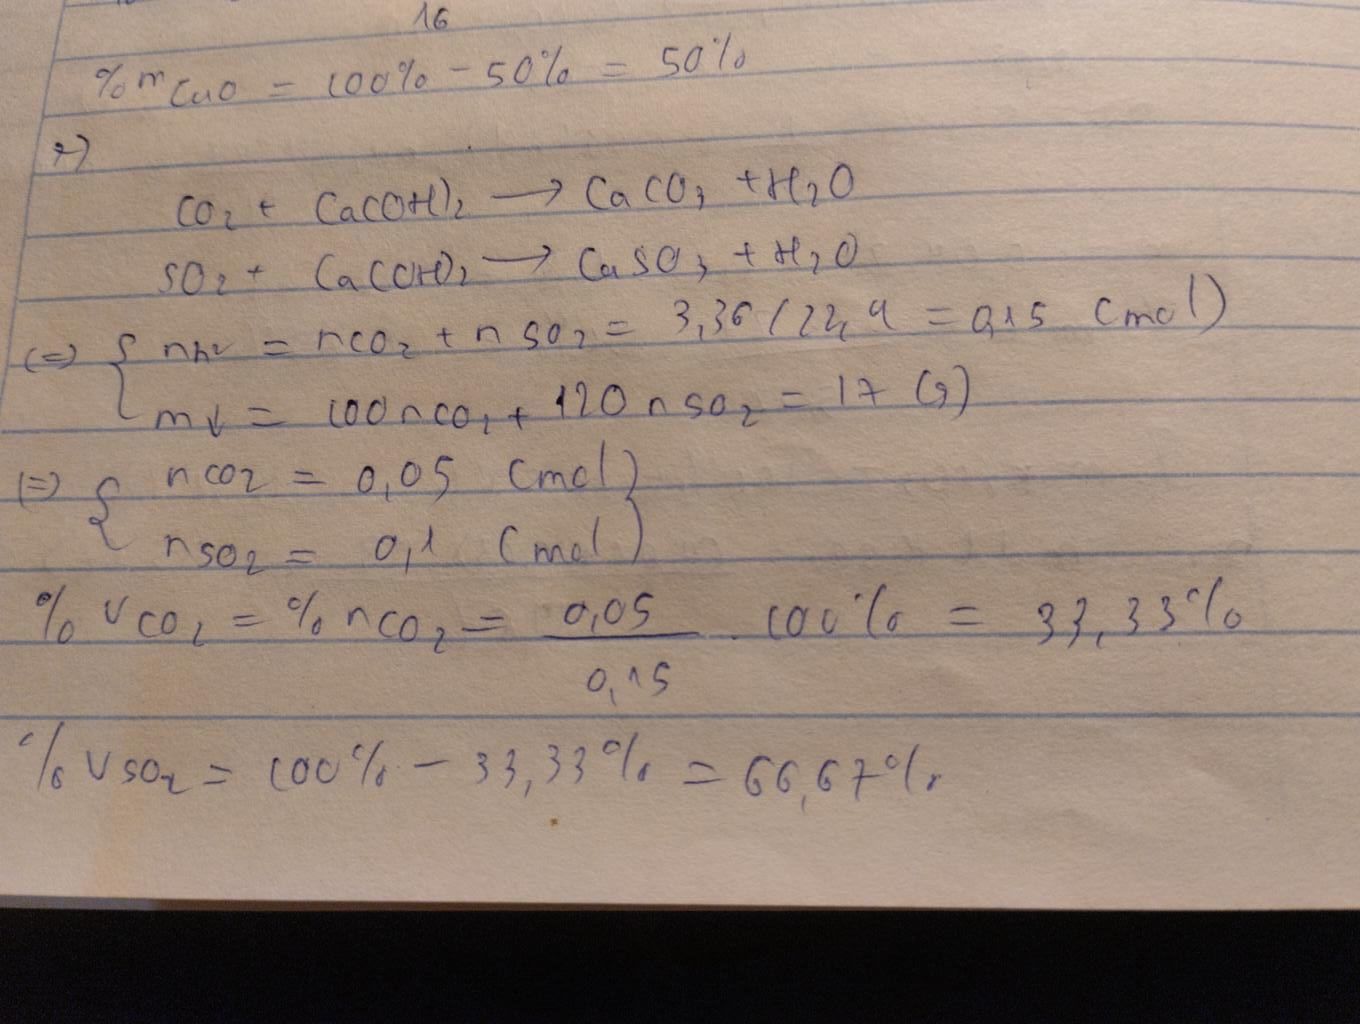 16
%mCuO = 100% - 50% = 50%
7)
CO2 + Ca(OH)2 → CaCO3 + H2O
SO2 + Ca(OH)2 → CaSO3 + H2O
(=) { nh² = nCO2 + nSO2 = 3,36 / 22,4 = 0,15 (mol)
m↓ = 100nCO2 + 120nSO2 = 17 (g)
(=) { nCO2 = 0,05 (mol)
nSO2 = 0,1 (mol) }
%VCO2 = %nCO2 = 0,05 / 0,15 . 100% = 33,33%
%VSO2 = 100% - 33,33% = 66,67%